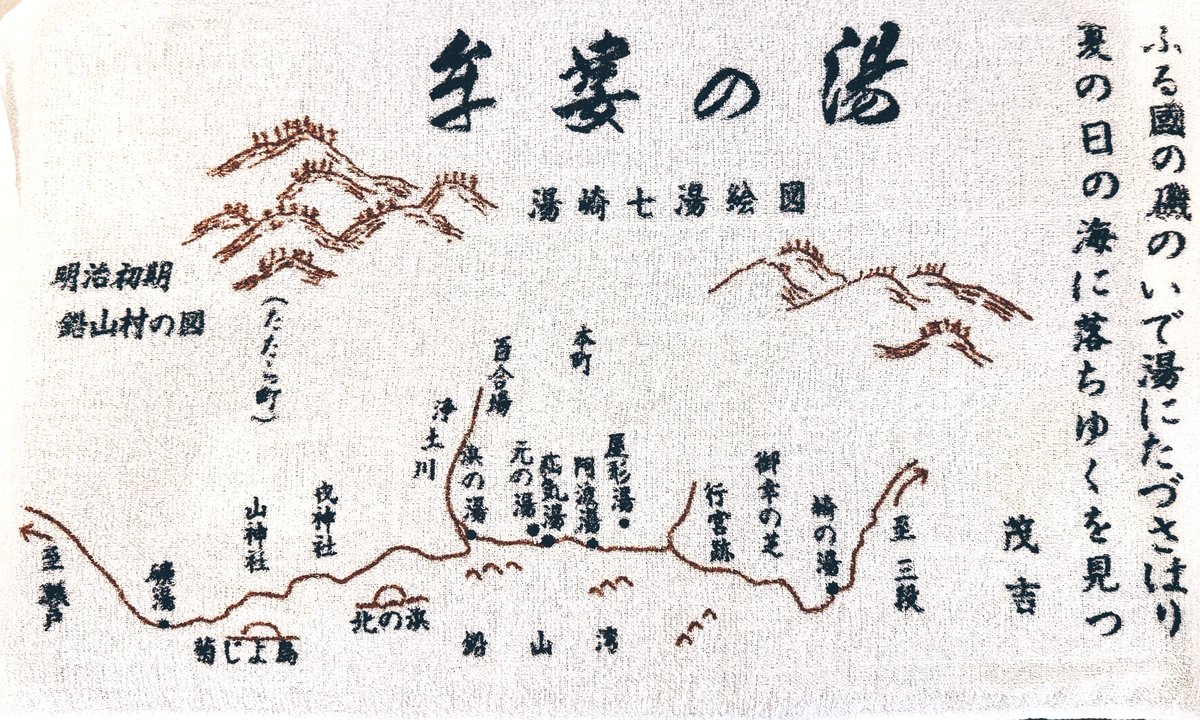 ふる國の磯のいで湯にたづさはり
夏の日の海に落ちゆくを見つ
茂吉
牟婁の湯
湯崎七湯絵図
明治初期
鉛山村の図
(たたら町)
本町
百合場
浄土川
浜の湯
元の湯
疝気湯
阿波湯
屋形湯
行宮跡
御幸の芝
崎の湯
至三段
山神社
戎神社
礦湯
至瀬戸
北の浜
鉛山湾